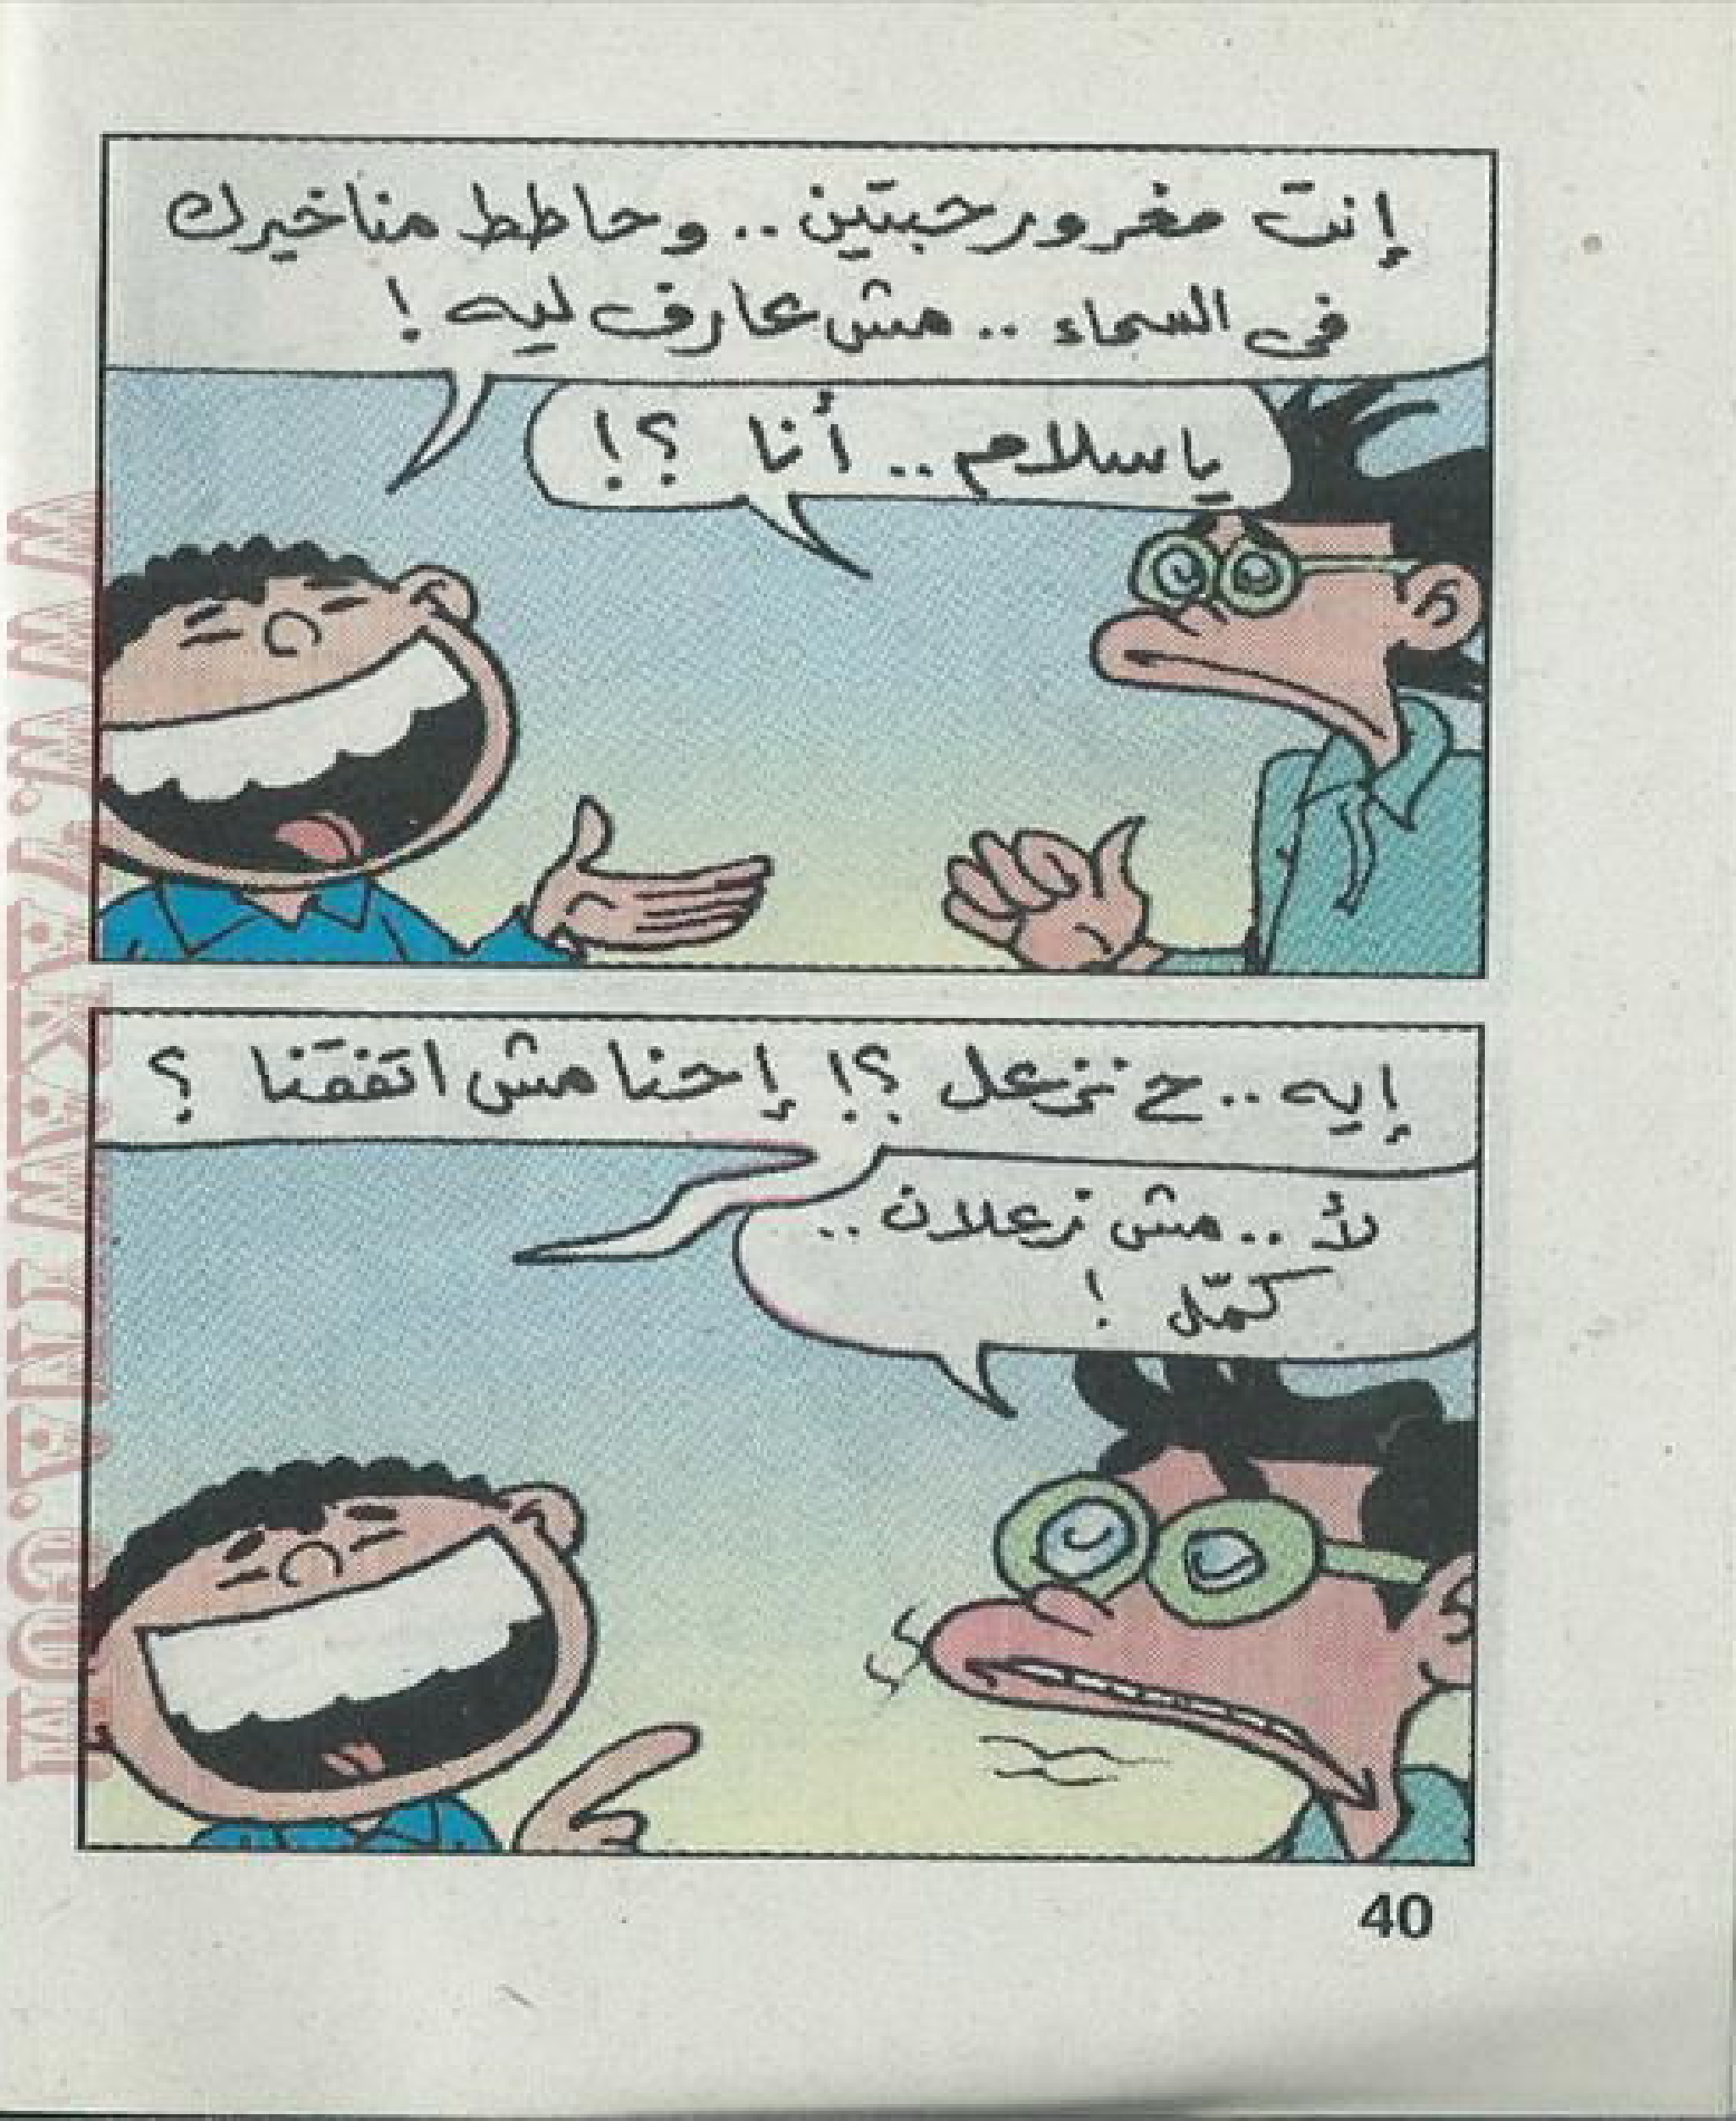 إنت مغرور حبتين .. وحاطط مناخيرك
فى السماء .. مش عارف ليه !
ياسلام .. أنا ؟!
إيه .. ح تزعل ؟! إحنا مش اتفقنا ؟
لأ .. مش زعلان ..
كمّل !
40
WWW.TAKWEINE.COM